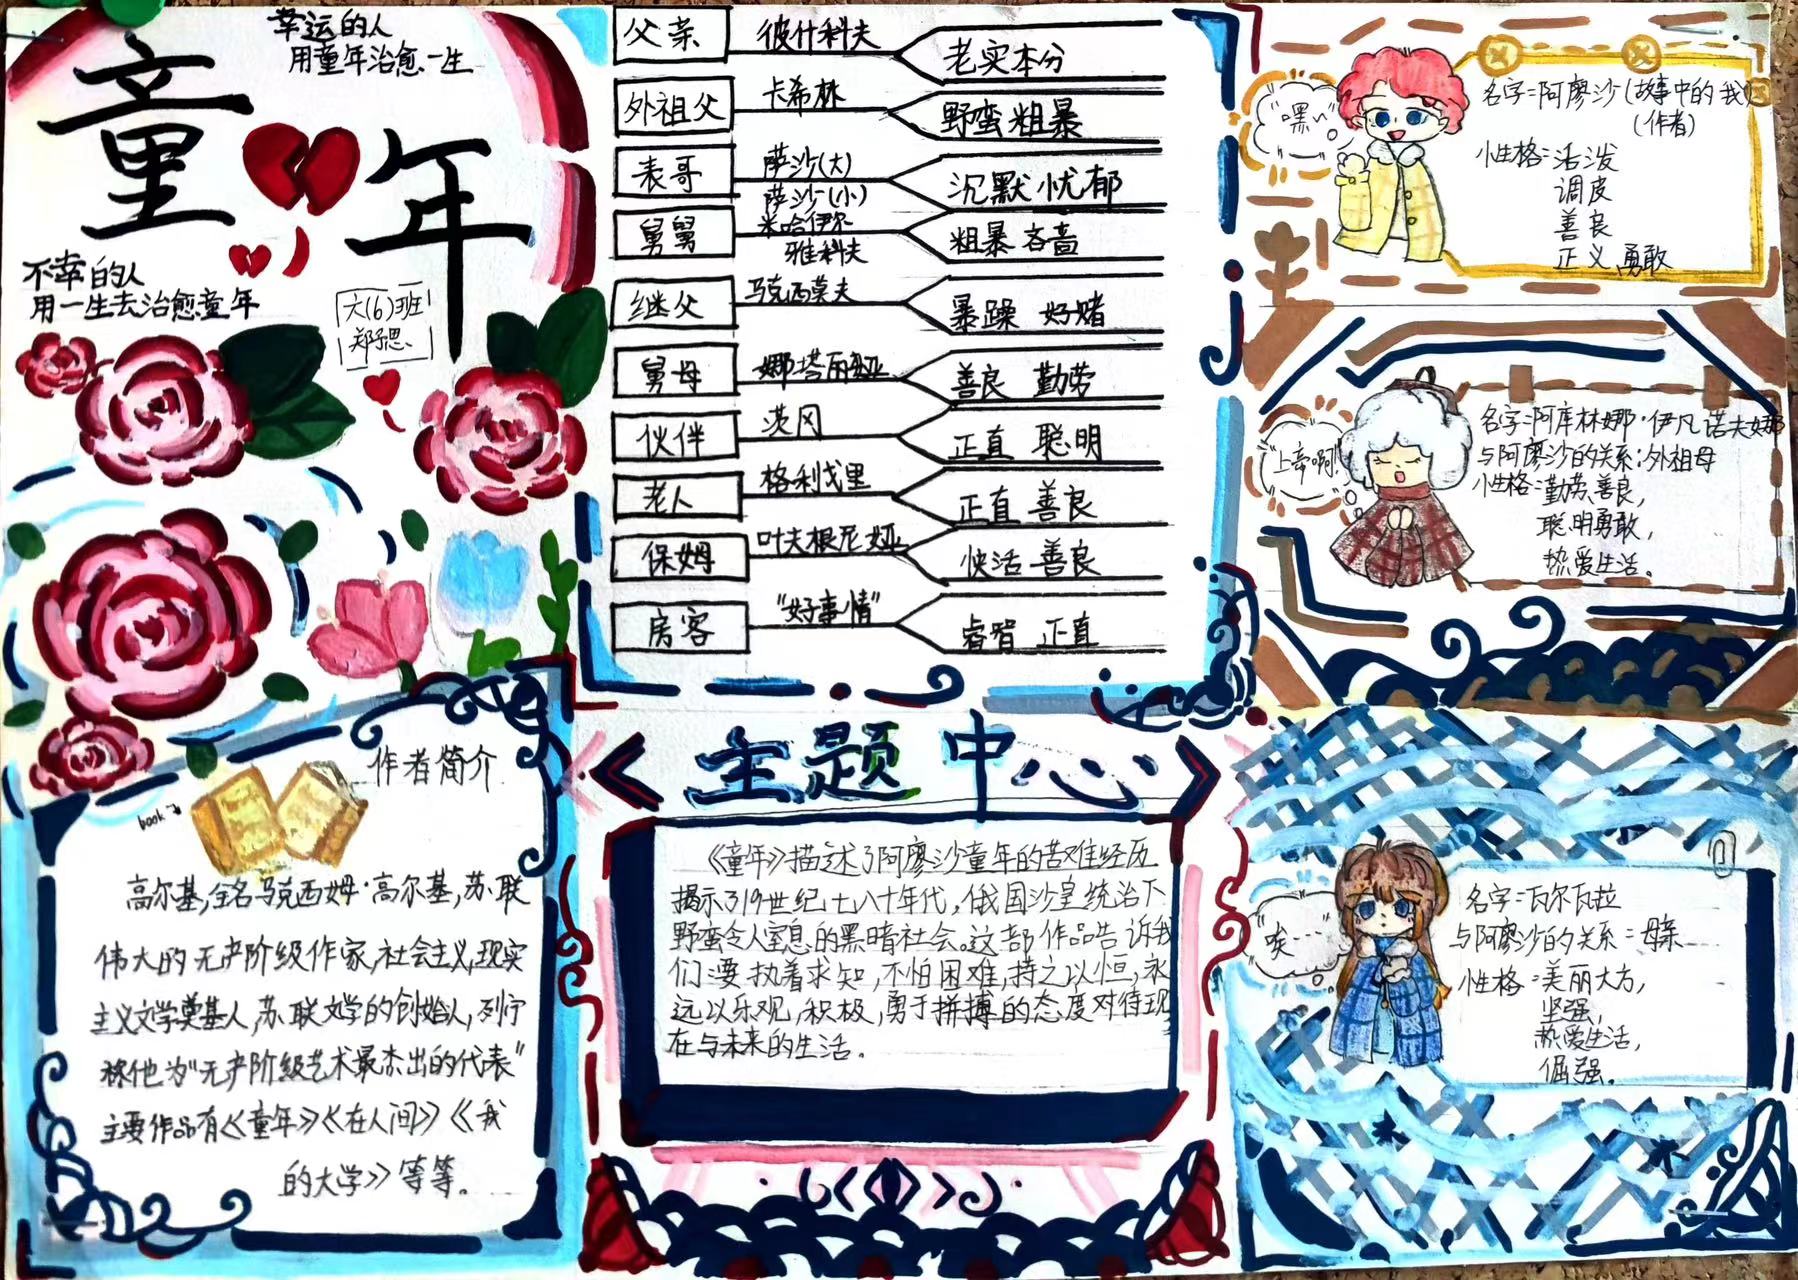 童年
幸运的人
用童年治愈一生
不幸的人
用一生去治愈童年
六(6)班
父亲 彼什科夫 老实本分
外祖父 卡希林 野蛮 粗暴
表哥 萨沙(大) 萨沙(小) 沉默 忧郁
舅舅 米哈伊尔 雅科夫 粗暴 吝啬
继父 马克西莫夫 暴躁 好赌
舅母 娜塔丽娅 善良 勤劳
伙伴 茨冈 正直 聪明
老人 格利戈里 正直 善良
保姆 叶夫根尼娅 快活 善良
房客 “好事情” 睿智 正直
嘿~
名字:阿廖沙(故事中的我)
(作者)
小性格:活泼
调皮
善良
正义 勇敢
“上帝啊!”
名字:阿库林娜·伊凡诺夫娜
与阿廖沙的关系:外祖母
小性格:勤劳,善良,
聪明勇敢,
热爱生活。
作者简介
book
高尔基,全名马克西姆·高尔基,苏联
伟大的无产阶级作家,社会主义,现实
主义文学奠基人,苏联文学的创始人,列宁
称他为“无产阶级艺术最杰出的代表”
主要作品有《童年》《在人间》《我
的大学》等等。
主题中心
《童年》描述了阿廖沙童年的苦难经历
揭示了19世纪七八十年代,俄国沙皇统治下
野蛮令人窒息的黑暗社会。这部作品告诉我
们:要执着求知,不怕困难,持之以恒,永
远以乐观,积极,勇于拼搏的态度对待现
在与未来的生活。
唉……
名字:瓦尔瓦拉
与阿廖沙的关系:母亲
性格:美丽大方,
坚强,
热爱生活,
倔强。